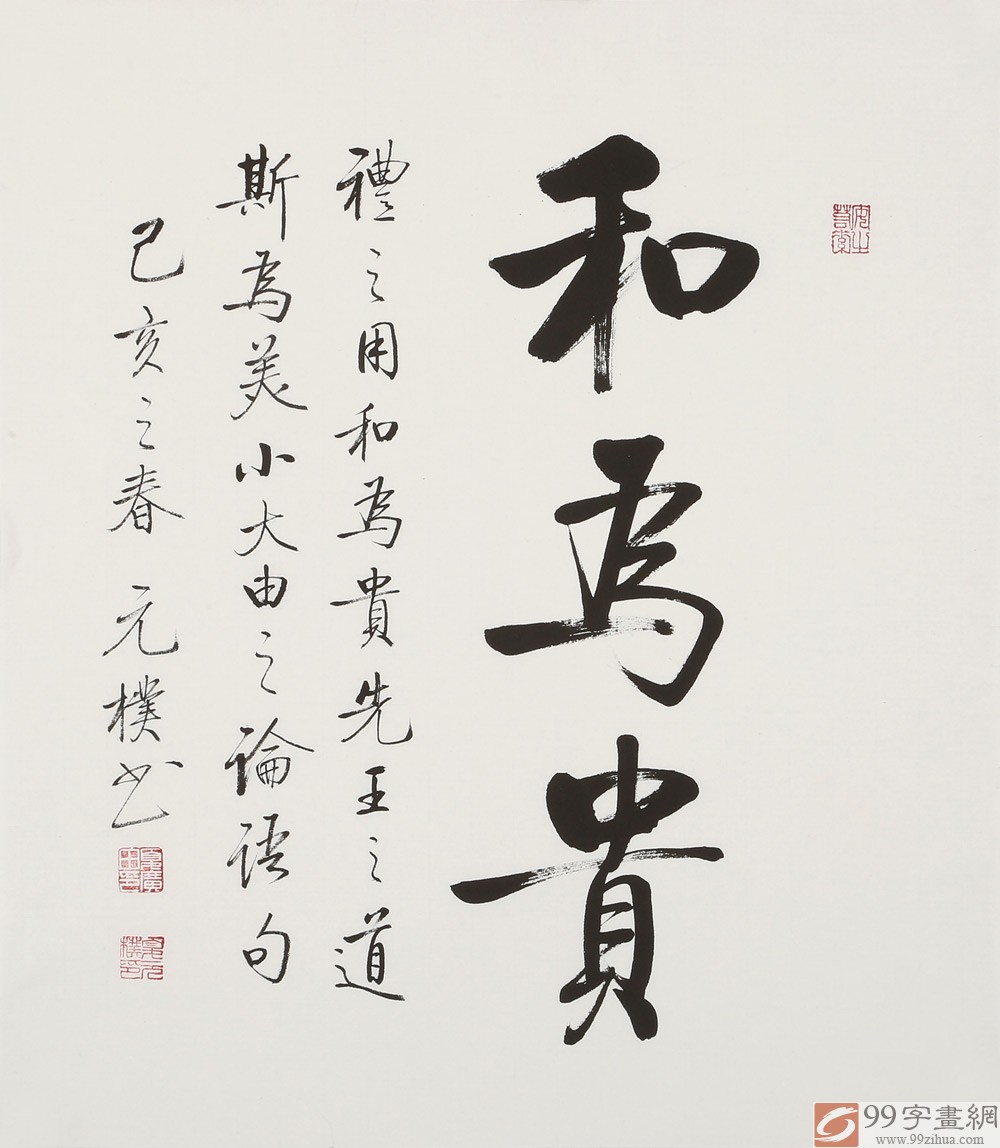 和為貴
禮之用和為貴先王之道
斯為美小大由之論語句
己亥之春 元樸书
99字畫網
www.99zihua.com